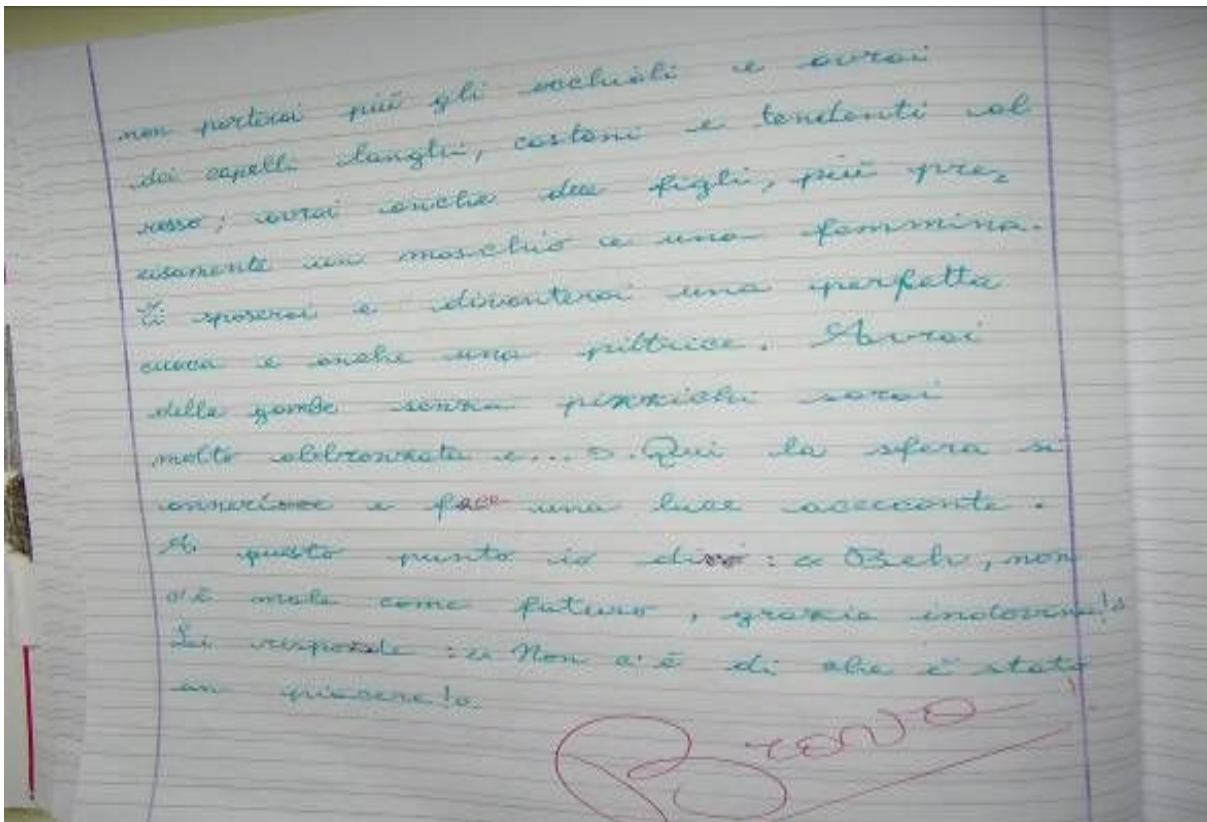 non porterai più gli occhiali e avrai
dei capelli langhi, castani e tendenti al
rosso; avrai anche due figli, più pre=
cisamente un maschio e una femmina.
Ti sposerai e diventerai una perfetta
cuoca e anche una pittrice. Avrai
delle gambe senza pizzichi sarai
molto abbronzata e...». Qui la sfera si
annerisce e fece una luce accecante.
A questo punto io dirò: « Beh, non
c'è male come futuro, grazie indovina!»
Lei risponde: « Non c'è di che è stato
un piacere!».
Brava!